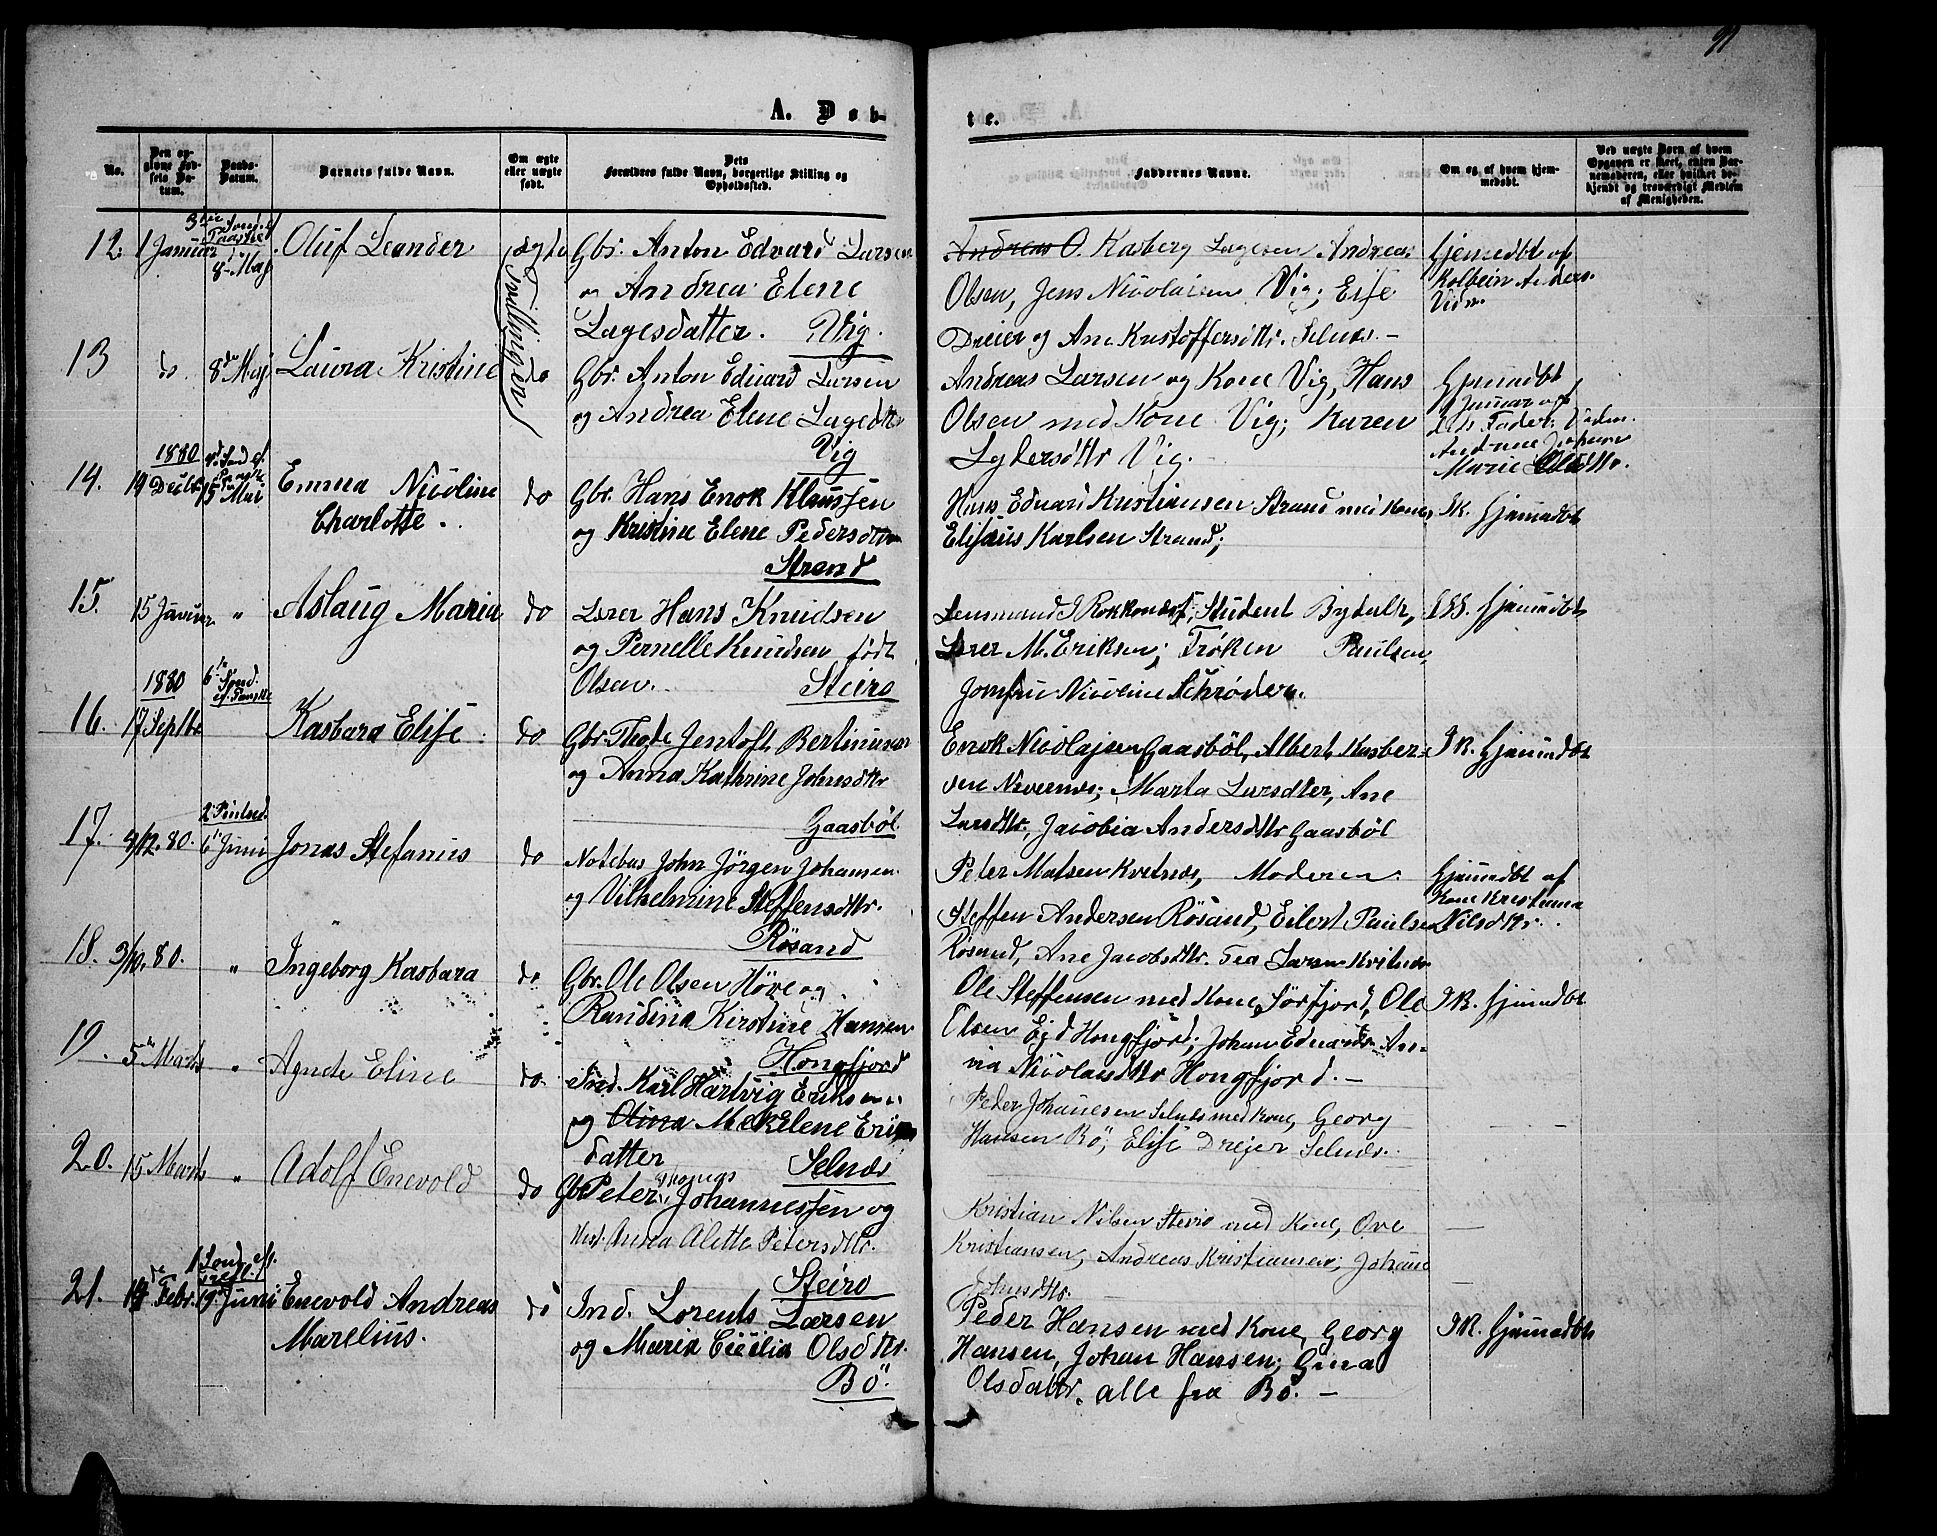 91
A. Døb-
te.
No.
Den opgivne Fødsels Datum.
Daabs-Datum.
Barnets fulde Navn.
Om ægte eller uægte født.
Forældres fulde Navn, borgerlige Stilling og Opholdssted.
Faddernes Navne.
Om og af hvem hjemmedøbt.
Ved uægte Børn af hvem Opgaven er skeet, enten Barnemoderen, eller hvilket bekjendt og troværdigt Medlem af Menigheden.
12. 1 Januar 8 Maj Oluf Leander ægte Gbr. Anton Edvard Larsen
og Andrea Elene
Lagesdatter. Vig.
Andreas O. Kasberg Lagesen, Andreas
Olsen, Jens Nicolaisen Vig; Elise
Dreier og Ane Kristoffersdtr. Selnæs.-
Hjemedbt af
Kolbein Anders.
Vidn.
Tvillinger
13 do 8de Maj Laura Kristine do Gbr. Anton Eduard Larsen
og Andrea Elene Lagedtr
Vig
Andreas Larsen og Kone Vig, Hans
Olsen med Kone Vig; Karen
Lydersdtr Vig.-
Hjemedbt
1 Januar af
Marie Olsdtr.
1880
14. 19 Decbr 15 Mai Emma Nicoline
Charlotte. do Gbr. Hans Enok Klaussen
og Kristine Elene Pedersdtr
Strand
Hans Eduard Kristiansen Strand med Kone,
Elisæus Karlsen Strand;
Ik. hjemedbt
15. 15 Januar " Aslaug Maria do Lærer Hans Knudsen
og Pernelle Knudsen født
Olsen. Steiro
Lensmand Student
Lærer M. Eriksen; Frøken Paulsen,
Jomfru Nicoline Schrøder.
hjemedbt
1880 6te Sønd. ef. Paaske
16. 17 Septbr Kasbara Elise do Gbr. Thode Jentoft Bertinusen
og Anna Kathrine Johnsdtr
Gaasböl.
Enok Nicolajsen Gaasböl, Albert Kasber-
sen Nævernæs; Marta Larsdtter, Ane
Larsdtr, Jacobia Andersdtr Gaasböl
Ik. hjemedbt
17. 9/12. 80. 2 Pintsed. 6te Juni Jonas Stefanus do Notebas John Jörgen Johansen
og Vilhelmine Steffensdtr.
Rösand
Peter Matsen Kvitnæs, Moderen
Steffen Andersen Rösand, Eilert Paulsen
Rösand, Ane Jacobsdtr. Tea Larsen Kvitnæs
Hjemedbt af
Kone Kristiana
Nilsdtr.
18. 3/10. 80. " Ingeborg Kasbara do Gbr. Ole Olsen Höve og
Randina Kirstine Hansen
Hongfjord
Ole Steffensen med Kone, Sörfjord, Ole
Olsen Hongfjord; Johan Eduards An-
Nicolaisdtr Hongfjord.-
Ik. hjemedbt
19. 5te Marts " Agnete Eline do Ind. Karl Hartvig Eriksen
og Olina Mekelene Eriks
datter Selnæs
Peder Johansen Selnæs med Kone, Georg
Hansen Bö; Elise Drejer Selnæs.
20. 15 Marts " Adolf Enevold do Gbr Peter Thomas Johannessen og
Hust. Anna Alette Petersdtr.
Steiro
Kristian Nilsen Steiro med Kone, Ove
Kristiansen, Andreas Kristiansen; Johane
1 Sønd. ef. Trefl.
21. 14de Febr. 19 Juni Enevold Andreas
Marelius. do Ind. Lorents Larsen
og Maria Cicilia Olsdtr.
Bö.
Peder Hansen med Kone, Georg
Hansen, Johan Hansen; Gina
Olsdattr, alle fra Bö.-
Ik. hjemedbt